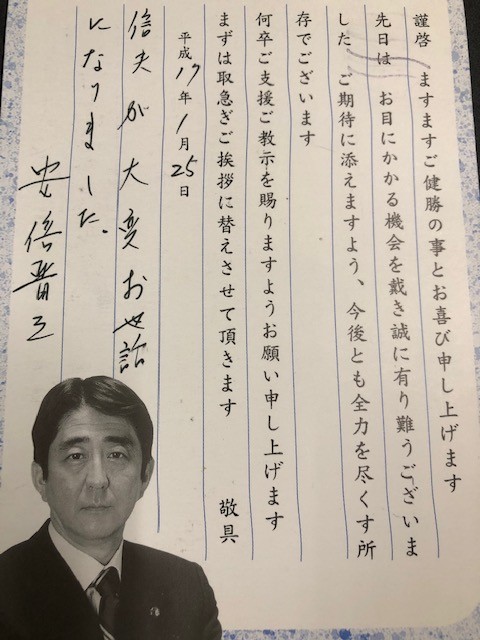 謹啓　ますますご健勝の事とお喜び申し上げます
先日は　お目にかかる機会を戴き誠に有り難うございま
した　ご期待に添えますよう、今後とも全力を尽くす所
存でございます
何卒ご支援ご教示を賜りますようお願い申し上げます
まずは取急ぎご挨拶に替えさせて頂きます　敬具
平成17年1月25日
信夫が大変お世話
になりました。
安倍晋三